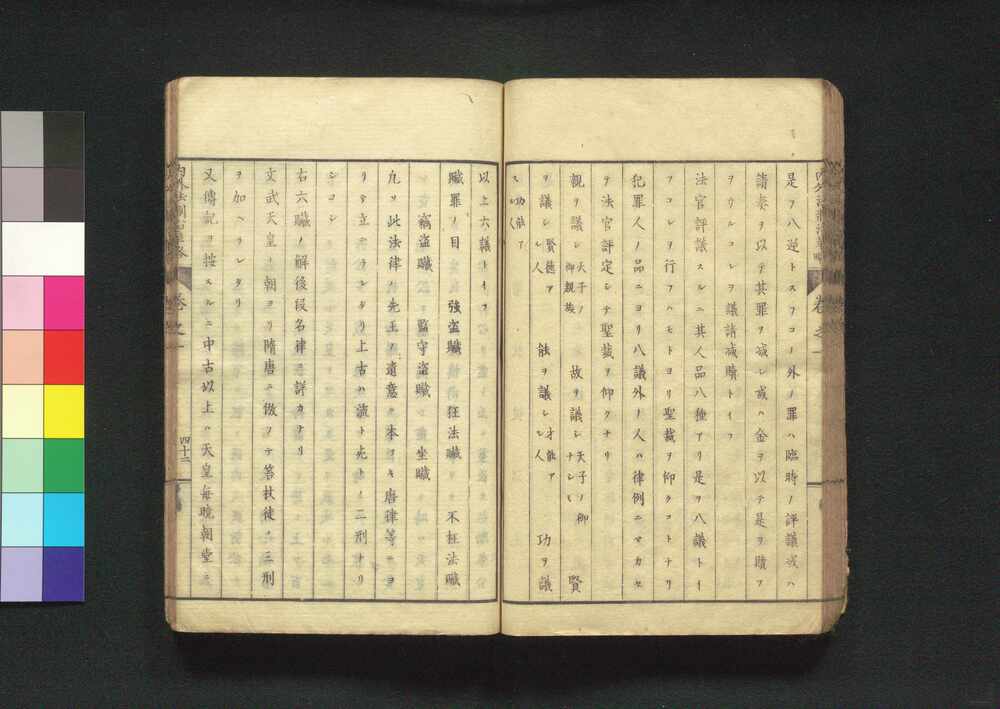 是ヲ八逆トスフコノ外ノ罪ハ臨時ノ評議或ハ
請奏ヲ以テ其罪ヲ減シ或ハ金ヲ以テ是ヲ贖フ
ヲウルコレヲ議請減贖トイフ
法官評議スルニ其人品八種アリ是ヲ八議トイ
フコレヲ行フハモトヨリ聖裁ヲ仰クコトナリ
犯罪人ノ品ニヨリ八議外ノ人ハ律例ニマカセ
テ法官評定シテ聖裁ヲ仰クナリ
親ヲ議シ 天子ノ御親族 故ヲ議シ 天子ノ御 賢
ヲ議シ 賢徳アル人 能ヲ議シ 才能アル人 功ヲ議
ス 功能アル人
以上六議トイフ
贓罪ノ目 強盗贓 枉法贓 不枉法贓
竊盗贓 監守盗贓 坐贓
凡ソ此法律ハ先王ノ遺意ニ本ツキ唐律等ニヨ
リテ立テラレタリ上古ハ流ト死トノ二刑ナリ
シコシ
右六贓ノ解後段名律ニ詳カナリ
文武天皇ノ朝ヨリ隋唐ニ倣フテ笞杖徒ノ三刑
ヲ加ヘラレタリ
又傳記ヲ按スルニ中古以上ハ天皇毎晩朝堂ニ
巻之一
四十二